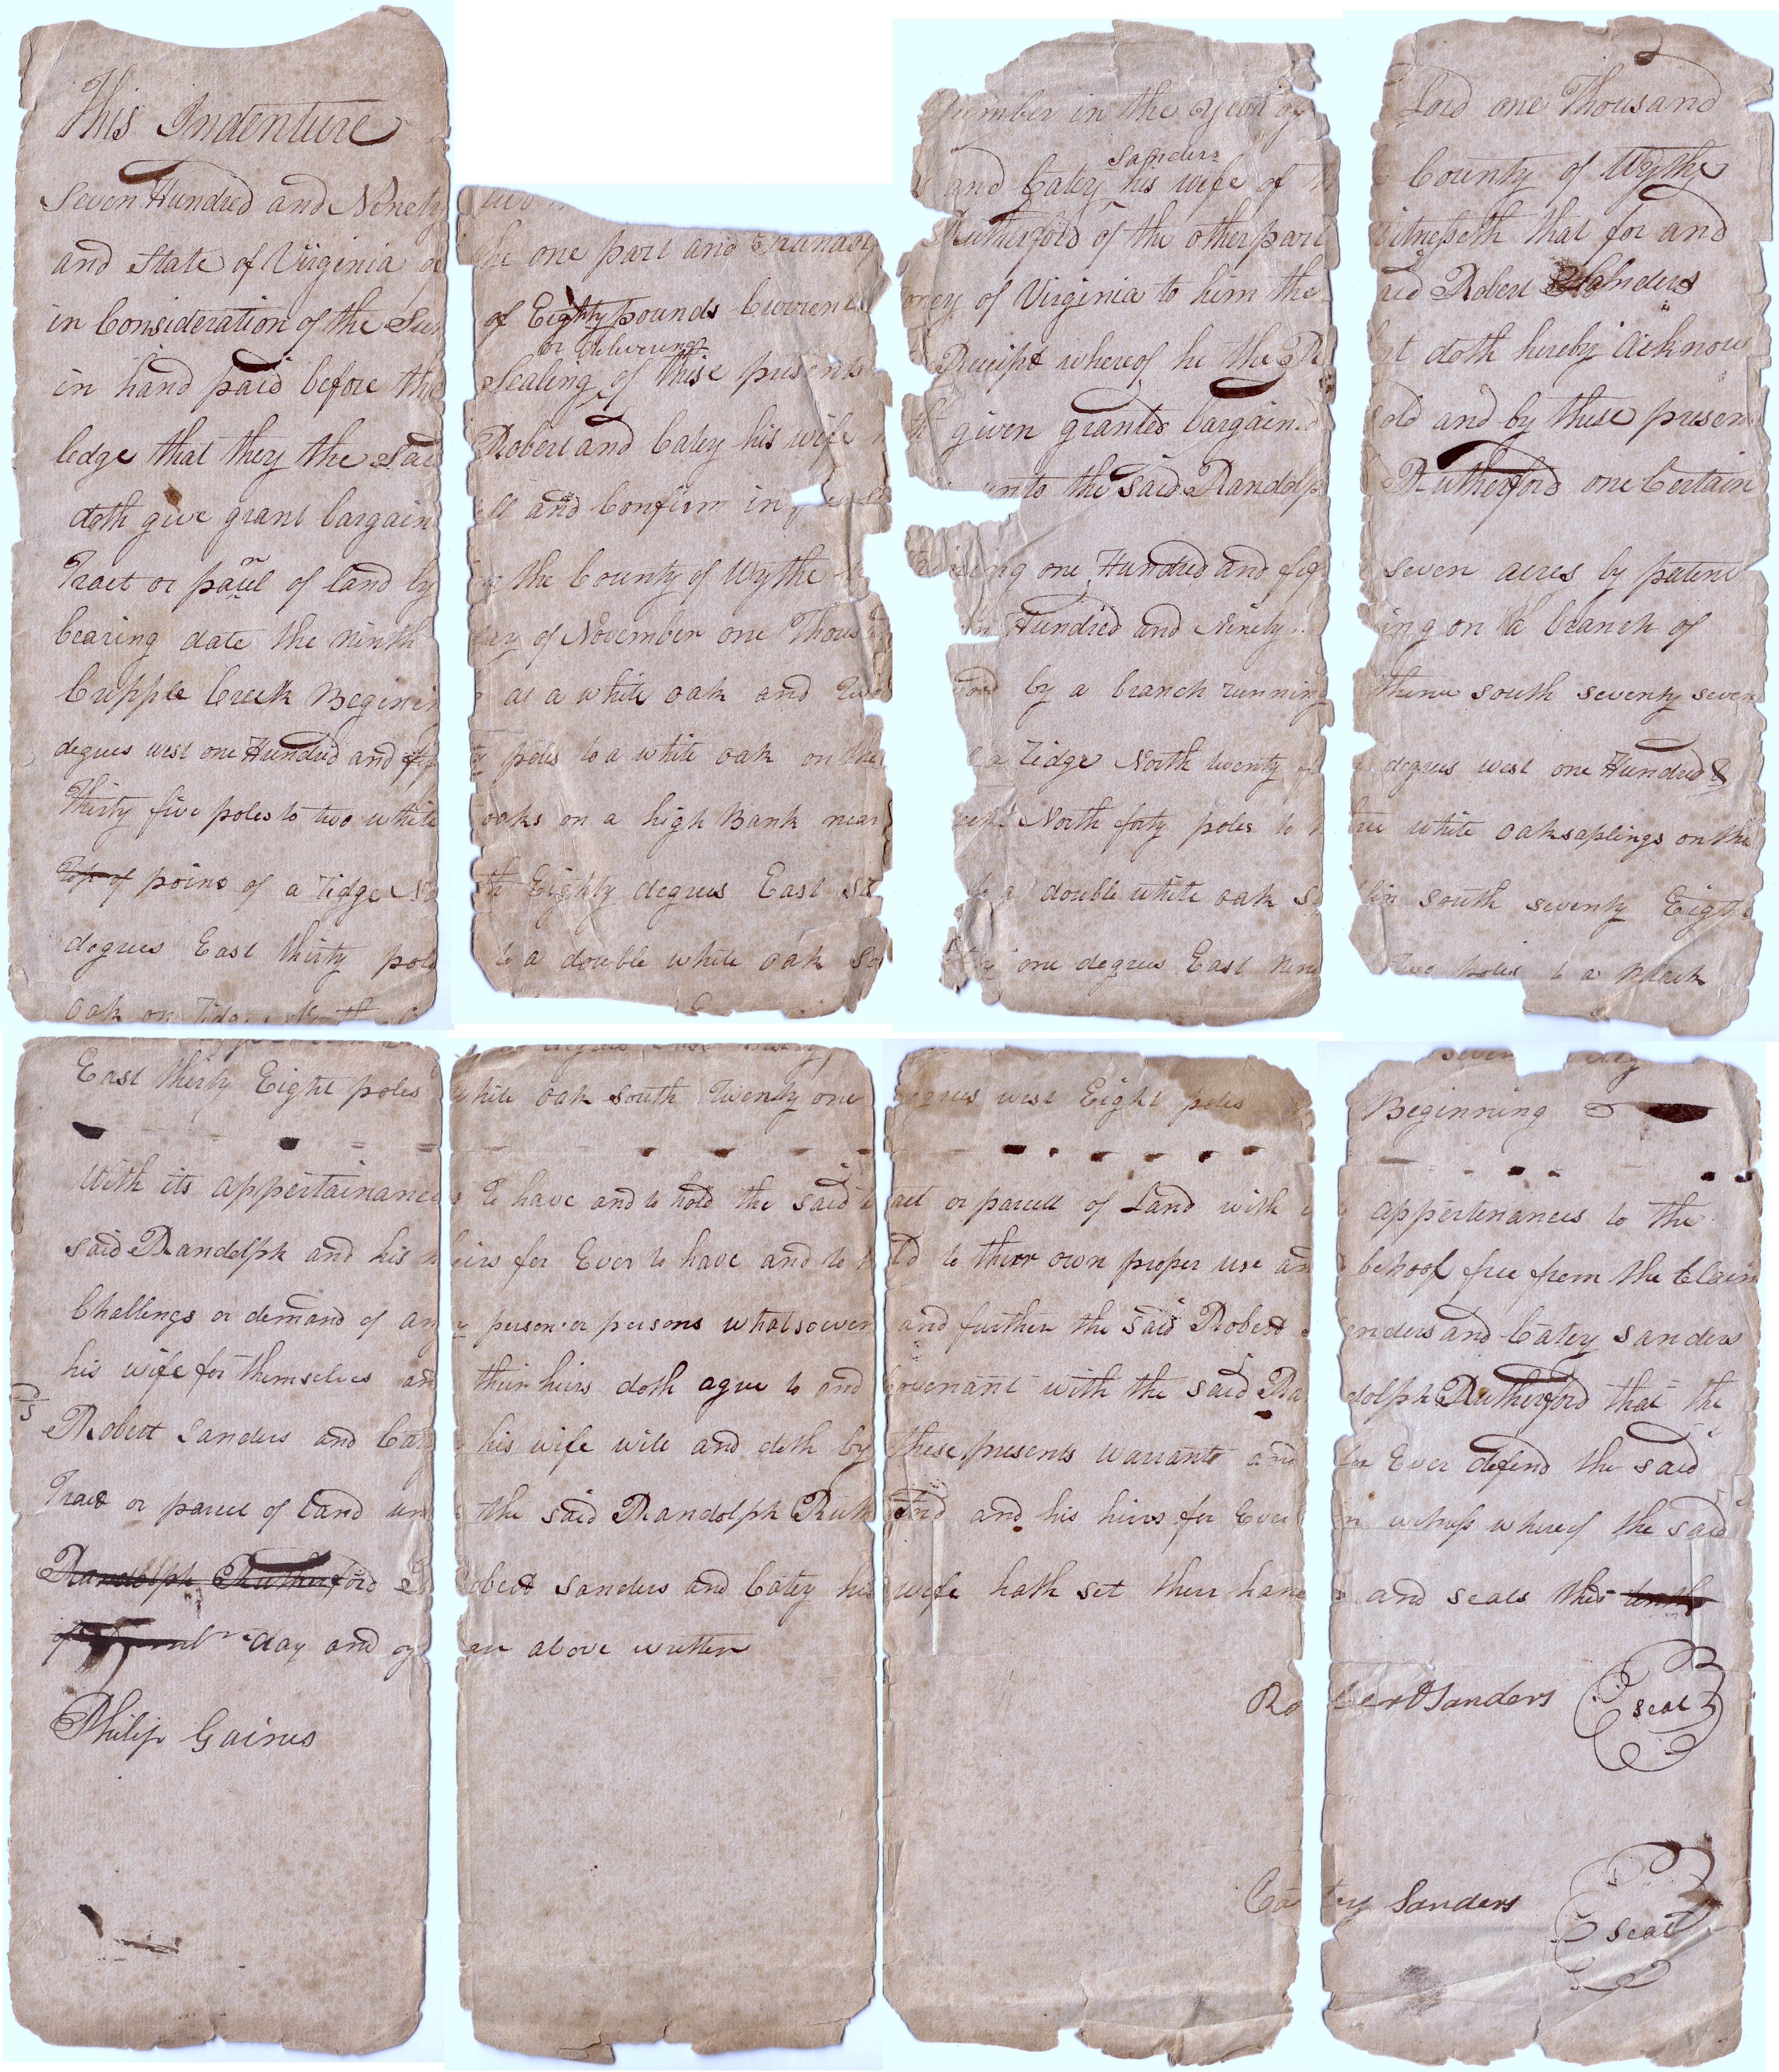 This Indenture ember in the year of Lord one Thousand
Sanders
Seven Hundred and Ninety and Catey his wife of County of Wythe
and State of Virginia of the one part and Rutherford of the other part Witnesseth that for and
in Consideration of the Sum of Eighty pounds Current money of Virginia to him the said Robert Sanders
or delivering
in hand paid before the Sealing of these presents Receipt whereof he the doth hereby Acknow
ledge that they the Said Robert and Catey his wife hath given granted bargained sold and by these presents
doth give grant bargain sell and Confirm in unto the said Randolph Rutherford one Certain
Tract or parcel of land by in the County of Wythe Containing one Hundred and fifty seven acres by patent
bearing date the ninth day of November one Thousand Hundred and Ninety ing on a branch of
Cripple Creek Begining at a white oak and two by a branch running thence south seventy seven
degrees west one Hundred and fifty poles to a white oak on the a ridge North twenty degrees west one Hundred &
Thirty five poles to two white oaks on a high Bank near North forty poles to three white oak saplings on the
Top of point of a ridge North Eighty degrees East to a double white oak south seventy Eight
degrees East thirty poles to a double white oak South one degrees East nine poles to a Black
oak on
East thirty Eight poles white oak South Twenty one degrees west Eight poles Beginning
With its appertainances To have and to hold the said tract or parcell of Land with appertenances to the
said Randolph and his heirs for Ever to have and to hold to their own proper use and behoof free from the Claim
Challengs or demand of any person or persons whatsoever and further the said Robert Sanders and Catey Sanders
his wife for themselves and their heirs doth agree to and Covenant with the said Randolph Rutherford that the
Robert Sanders and Catey his wife will and doth by these presents warrant and for Ever defend the said
Tract or parcel of land unto the said Randolph Rutherford and his heirs for Ever In witness whereof the said
Randolph Rutherford Robert Sanders and Catey his wife hath set their hands and seals this tenth
of day and year above written
Robert Sanders seal
Philip Gaines
Catey Sanders seal